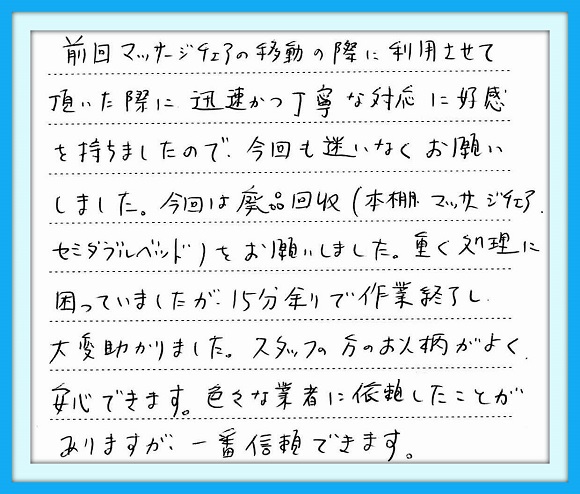 前回マッサージチェアの移動の際に利用させて
頂いた際に 迅速かつ丁寧な対応に好感
を持ちましたので、今回も迷いなくお願い
しました。今回は廃品回収(本棚、マッサージチェア、
セミダブルベッド)をお願いしました。重く処理に
困っていましたが、15分余りで作業終了し、
大変助かりました。スタッフの方のお人柄がよく、
安心できます。色々な業者に依頼したことが
ありますが、一番信頼できます。